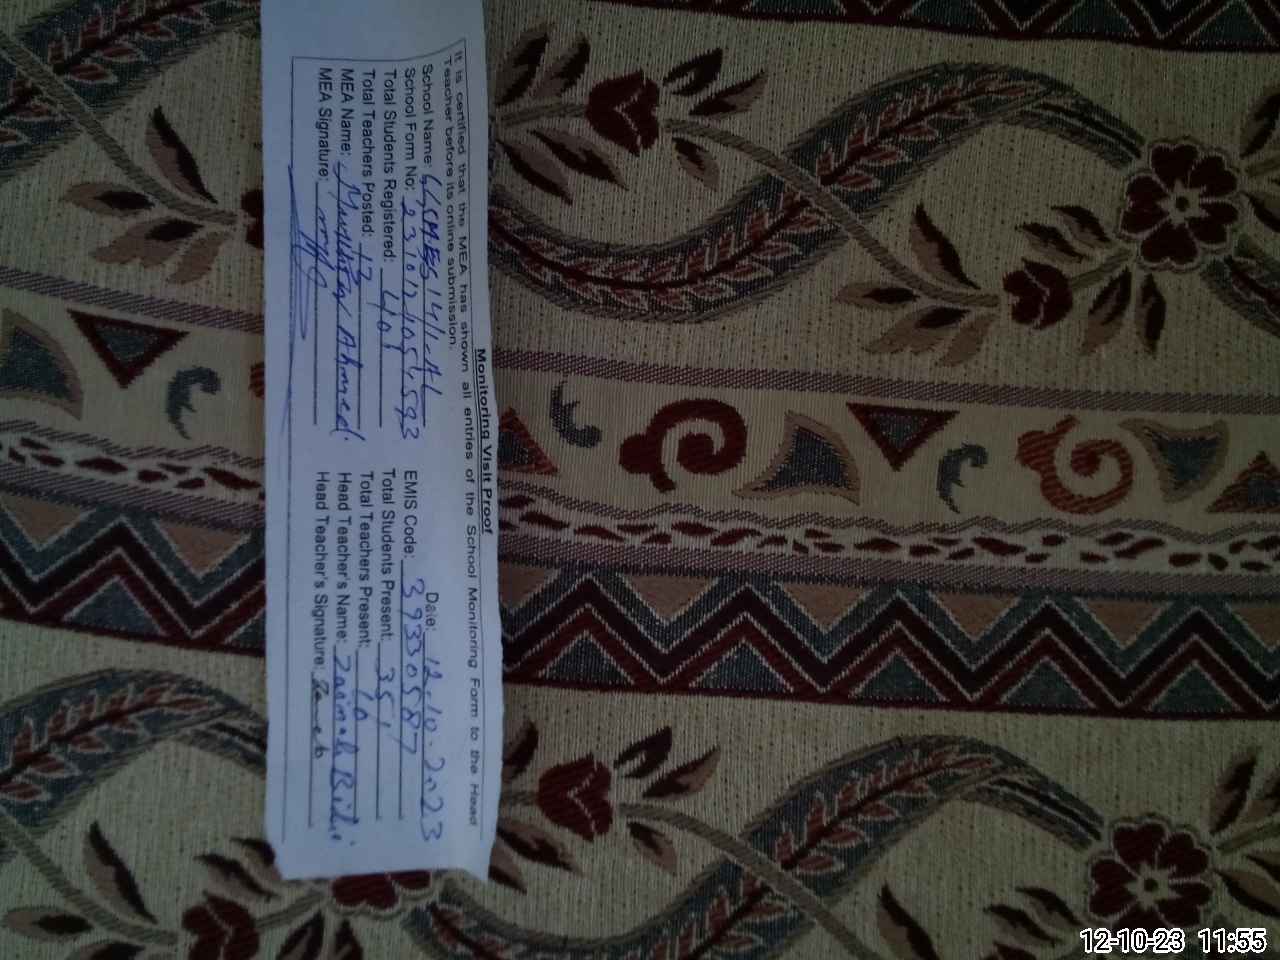 Monitoring Visit Proof
It is certified that the MEA has shown all entries of the School Monitoring Form to the Head
Teacher before its online submission.
Date: 12.10.2023
School Name: 14/1-AL
School Form No: 2310121054593
EMIS Code: 39330587
Total Students Registered: 401
Total Students Present: 351
Total Teachers Posted: 17
Total Teachers Present: 16
MEA Name: Ahmed
Head Teacher's Name: Zainab Bibi
MEA Signature:
Head Teacher's Signature: Zaineb
12-10-23 11:55